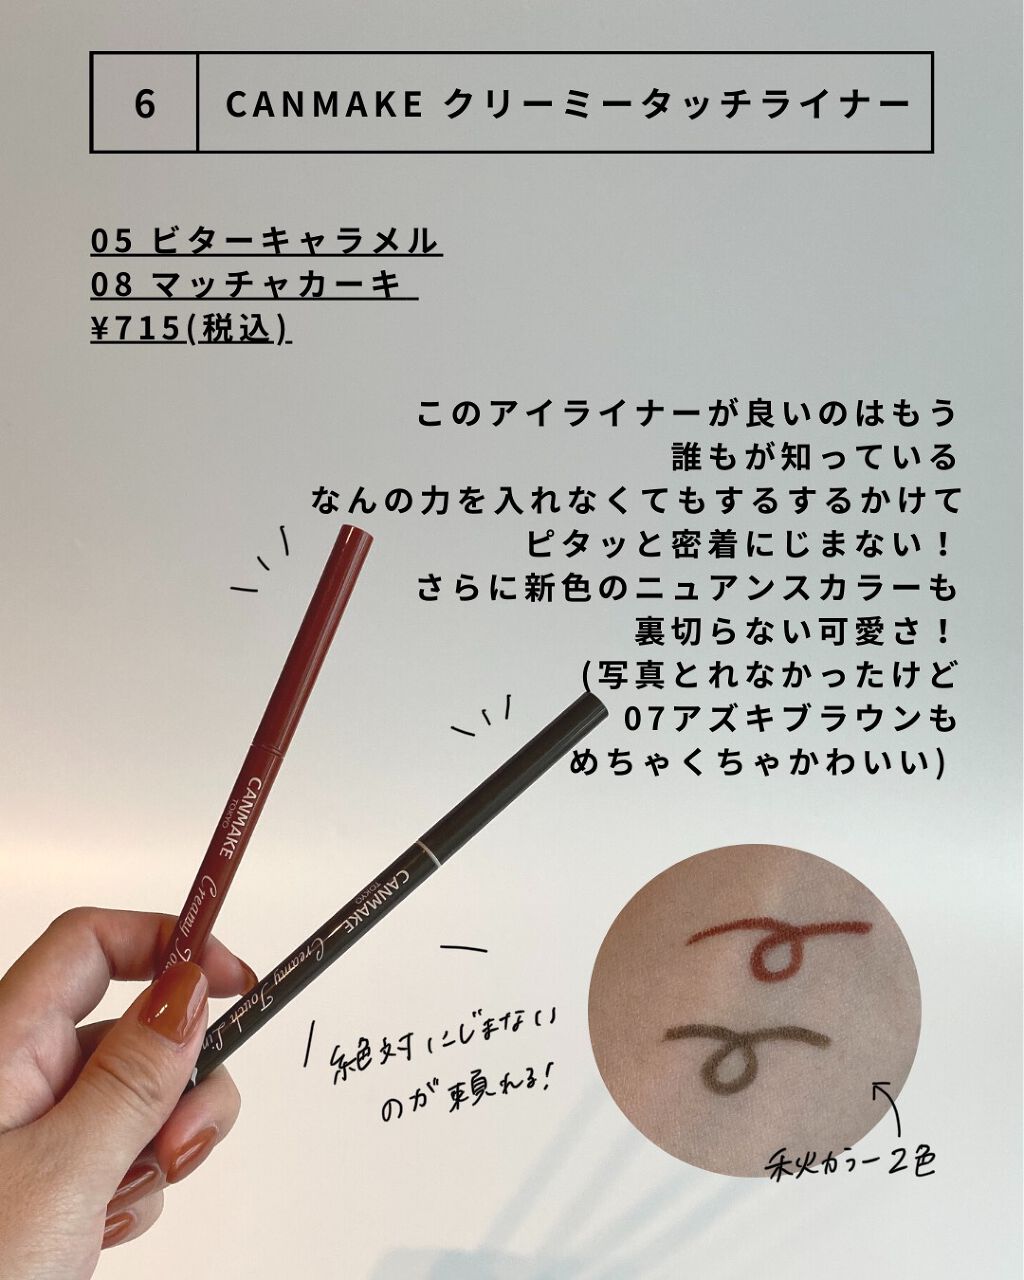 6 CANMAKE クリーミータッチライナー
05 ビターキャラメル
08 マッチャカーキ
¥715(税込)
このアイライナーが良いのはもう
誰もが知っている
なんの力を入れなくてもするするかけて
ピタッと密着にじまない！
さらに新色のニュアンスカラーも
裏切らない可愛さ！
(写真とれなかったけど
07アズキブラウンも
めちゃくちゃかわいい)
CANMAKE
TOKYO
Creamy Touch
CANMAKE
TOKYO
Creamy Touch Lin
絶対にじまない
のが頼れる!
秋カラー2色